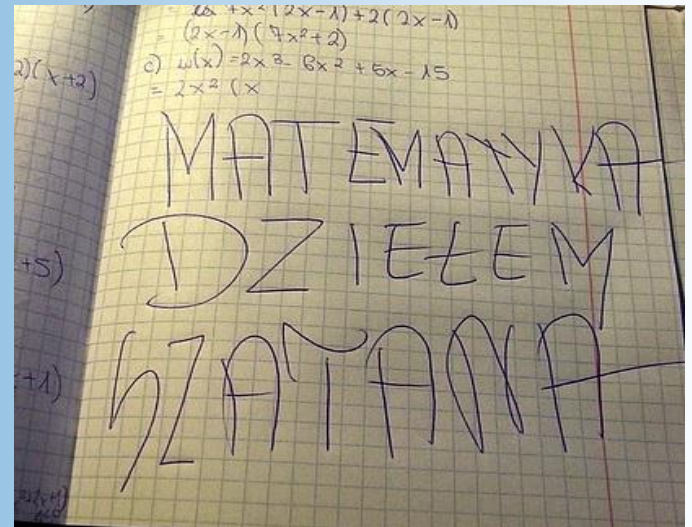 +x²(2x-1)+2(2x-1)
= (2x-1)(7x²+2)
c) w(x)=2x³-6x²+5x-15
= 2x²(x
2)(x+2)
MATEMATYKA
DZIEŁEM
+5)
SZATANA
+1)